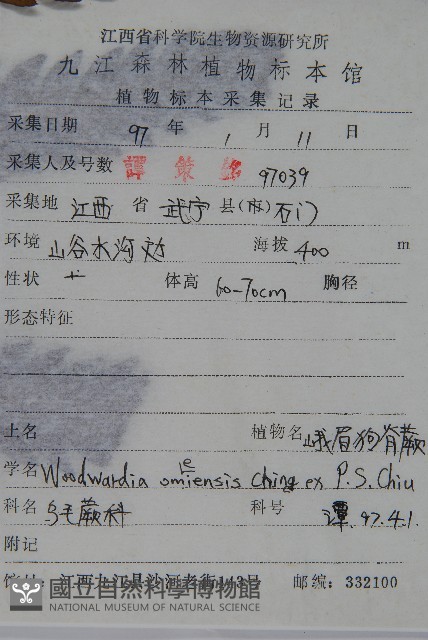 江西省科学院生物资源研究所
九江森林植物标本馆
植物标本采集记录
采集日期 97 年 1 月 11 日
采集人及号数 譚策銘 97039
采集地 江西 省 武宁 县(市) 石门
环境 山谷水沟边 海拔 400 m
性状 体高 60-70cm 胸径
形态特征
土名 植物名 峨眉狗脊蕨
学名 Woodwardia omeiensis Ching ex P.S.Chiu
科名 乌毛蕨科 科号 譚.97.4.1.
附记
馆址: 江西九江县沙河老街143号 邮编: 332100
國立自然科學博物館
NATIONAL MUSEUM OF NATURAL SCIENCE